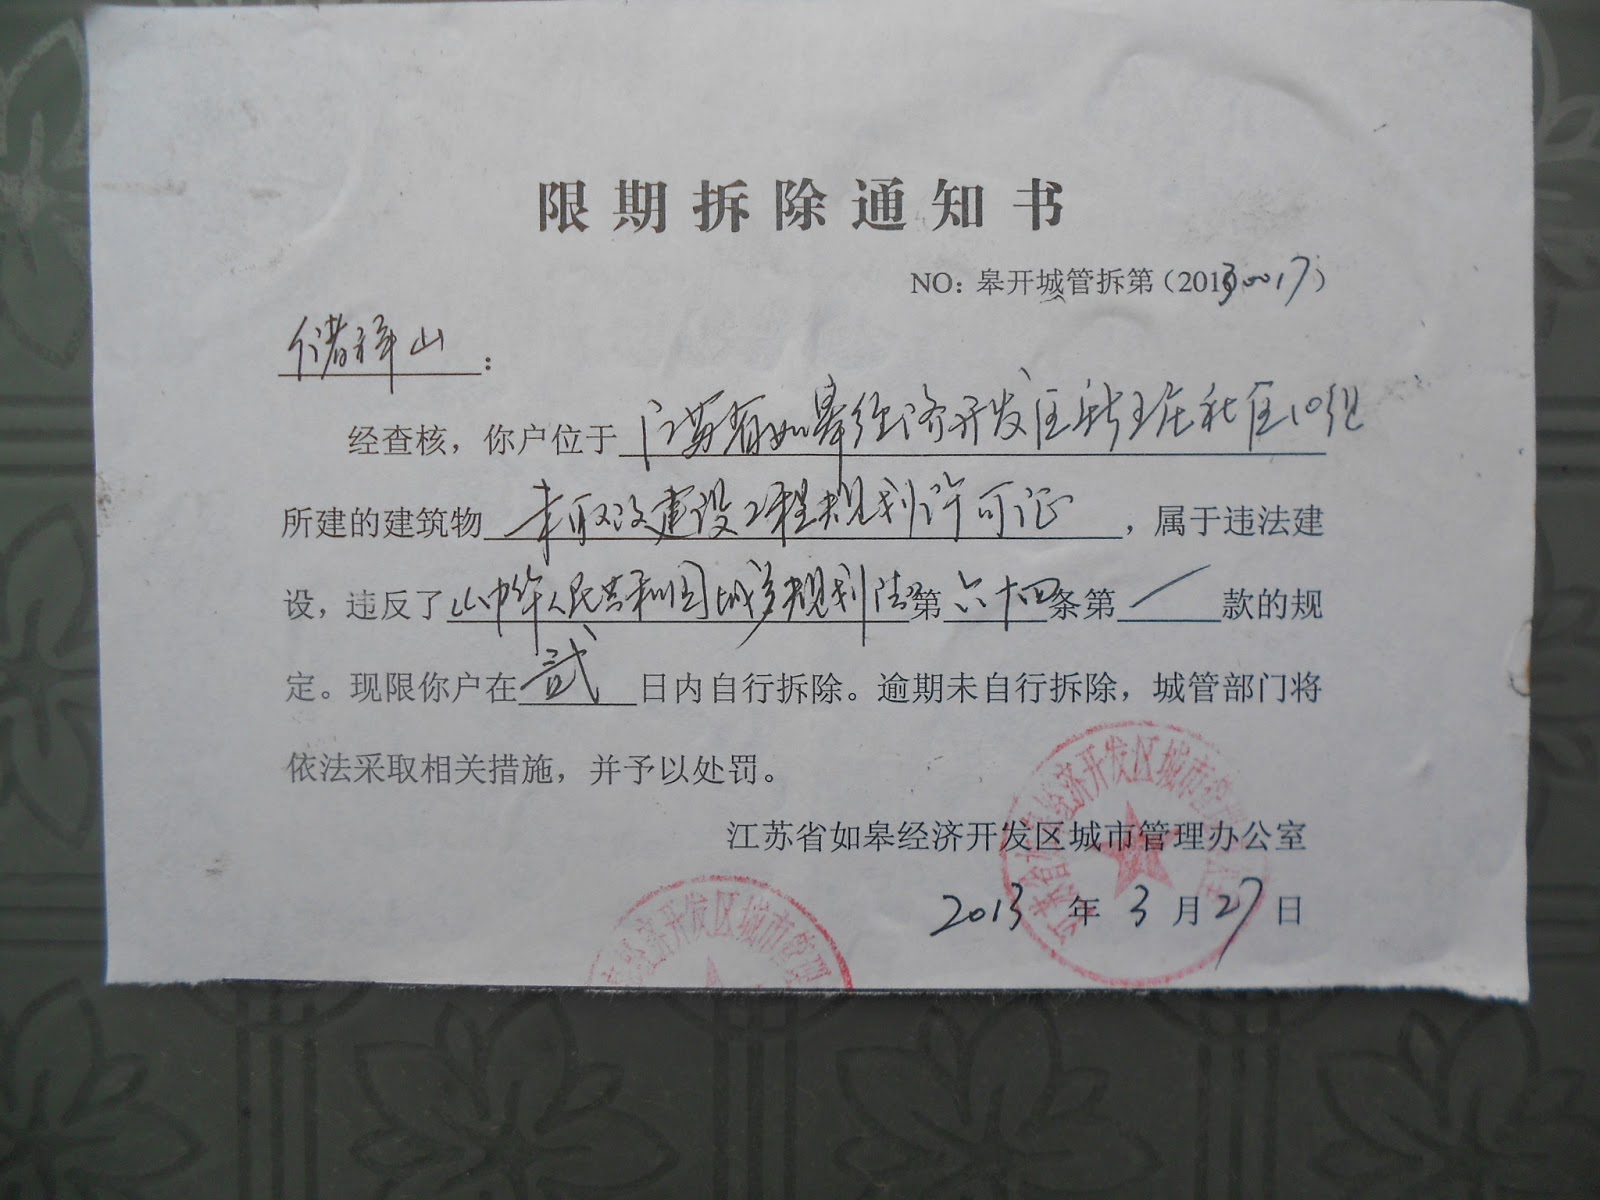 限期拆除通知书
NO：皋开城管拆第（20130017）
储祥山：
经查核，你户位于江苏省如皋经济开发区新王庄社区10组
所建的建筑物未取得建设工程规划许可证，属于违法建
设，违反了《中华人民共和国城乡规划法》第六十四条第／款的规
定。现限你户在贰日内自行拆除。逾期未自行拆除，城管部门将
依法采取相关措施，并予以处罚。
江苏省如皋经济开发区城市管理办公室
2013年3月27日
经济开发区城市管理